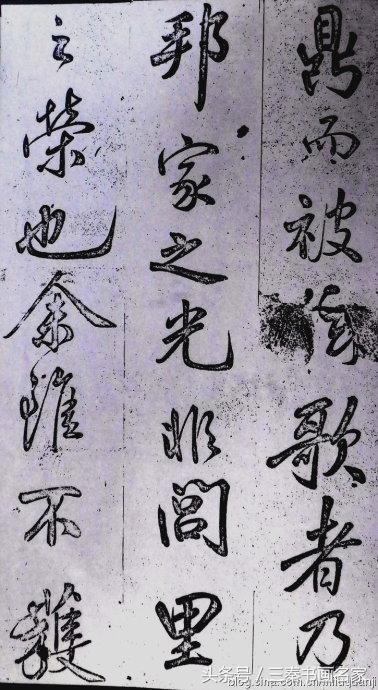 鼎而被歌者乃
邦家之光非閭里
之榮也余雖不獲
头条号 / 三秦书画名家